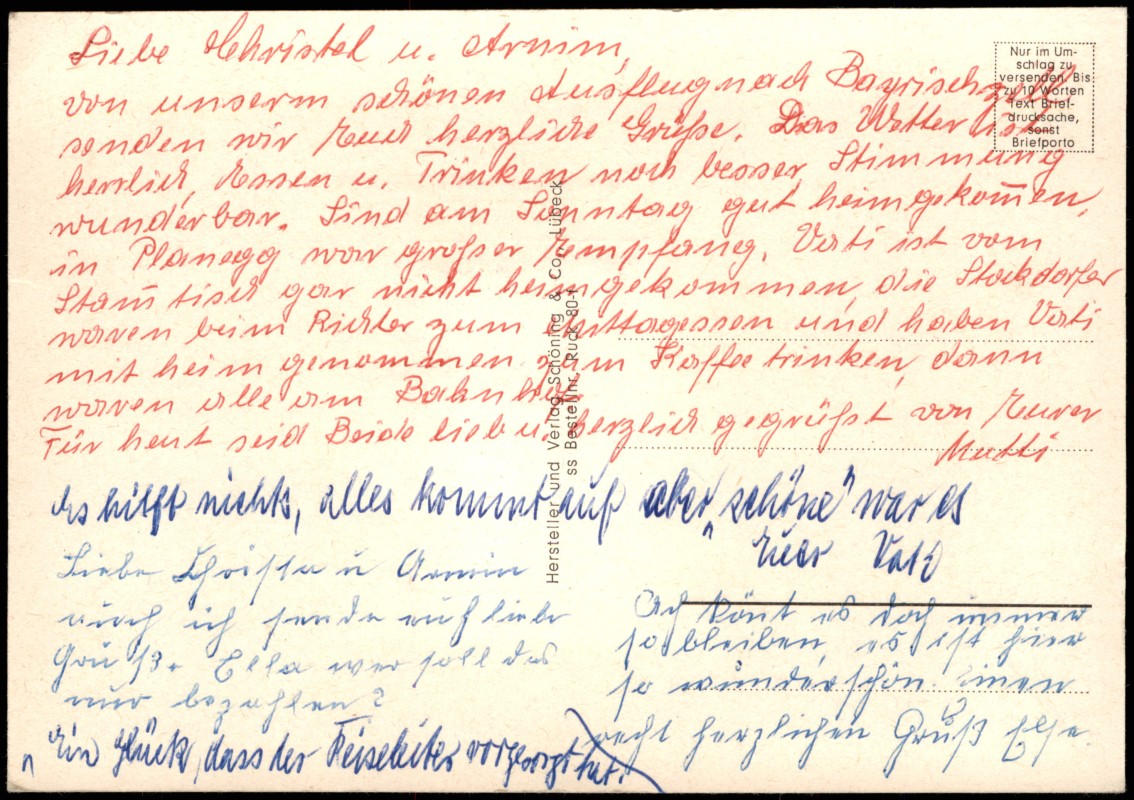 Liebe Christel u. Armin,
von unserm schönen Ausflug nach Bayrischzell
senden wir Euch herzliche Grüße. Das Wetter ist
herrlich, Essen u. Trinken noch besser, Stimmung
wunderbar. Sind am Sonntag gut heimgekom̄en,
in Planegg war großer Empfang. Vati ist vom
Stam̄tisch gar nicht heimgekommen, die Stockdorfer
waren beim Richter zum Mittagessen und haben Vati
mit heim genommen zum Kaffee trinken, dann
waren alle am Bahnhof.
Für heut seid Beide lieb u. herzlich gegrüßt von Eurer
Mutti
Es hilft nichts, alles kommt auf aber „schöne" war es
Euer Vati
Nur im Um-
schlag zu
versenden. Bis
zu 10 Worten
Text Brief-
drucksache,
sonst
Briefporto
Hersteller und Verlag Schöning & Co., Lübeck
ss Bestellnr. Ruck 80
Liebe Christa u Armin
auch ich sende euch liebe
Grüße. Ella wer soll das
nur bezahlen?
„Ein Glück, dass der Reiseleiter vorgesorgt hat."
Ach könt es doch immer
so bleiben, es ist hier
so wunderschön. Einen
recht herzlichen Gruß Else